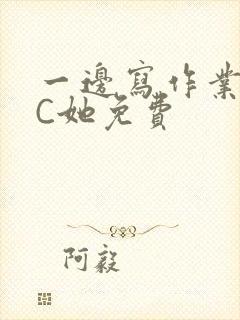 一邊寫作業
C她免費
阿毅